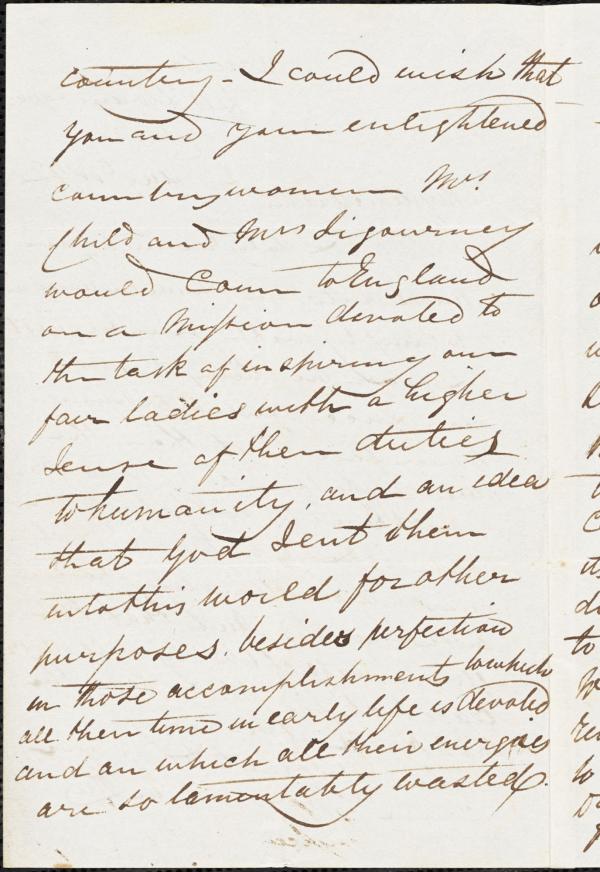 country - I could wish that
you and your enlightened
countrywomen Mrs
Child and Mrs Sigourney
would come to England
on a Mission devoted to
the task of inspiring our
fair ladies with a higher
sense of their duties
to humanity, and an idea
that God sent them
into this world for other
purposes. besides perfection
in those accomplishments to which
all their time in early life is devoted
and on which all their energies
are so lamentably wasted.